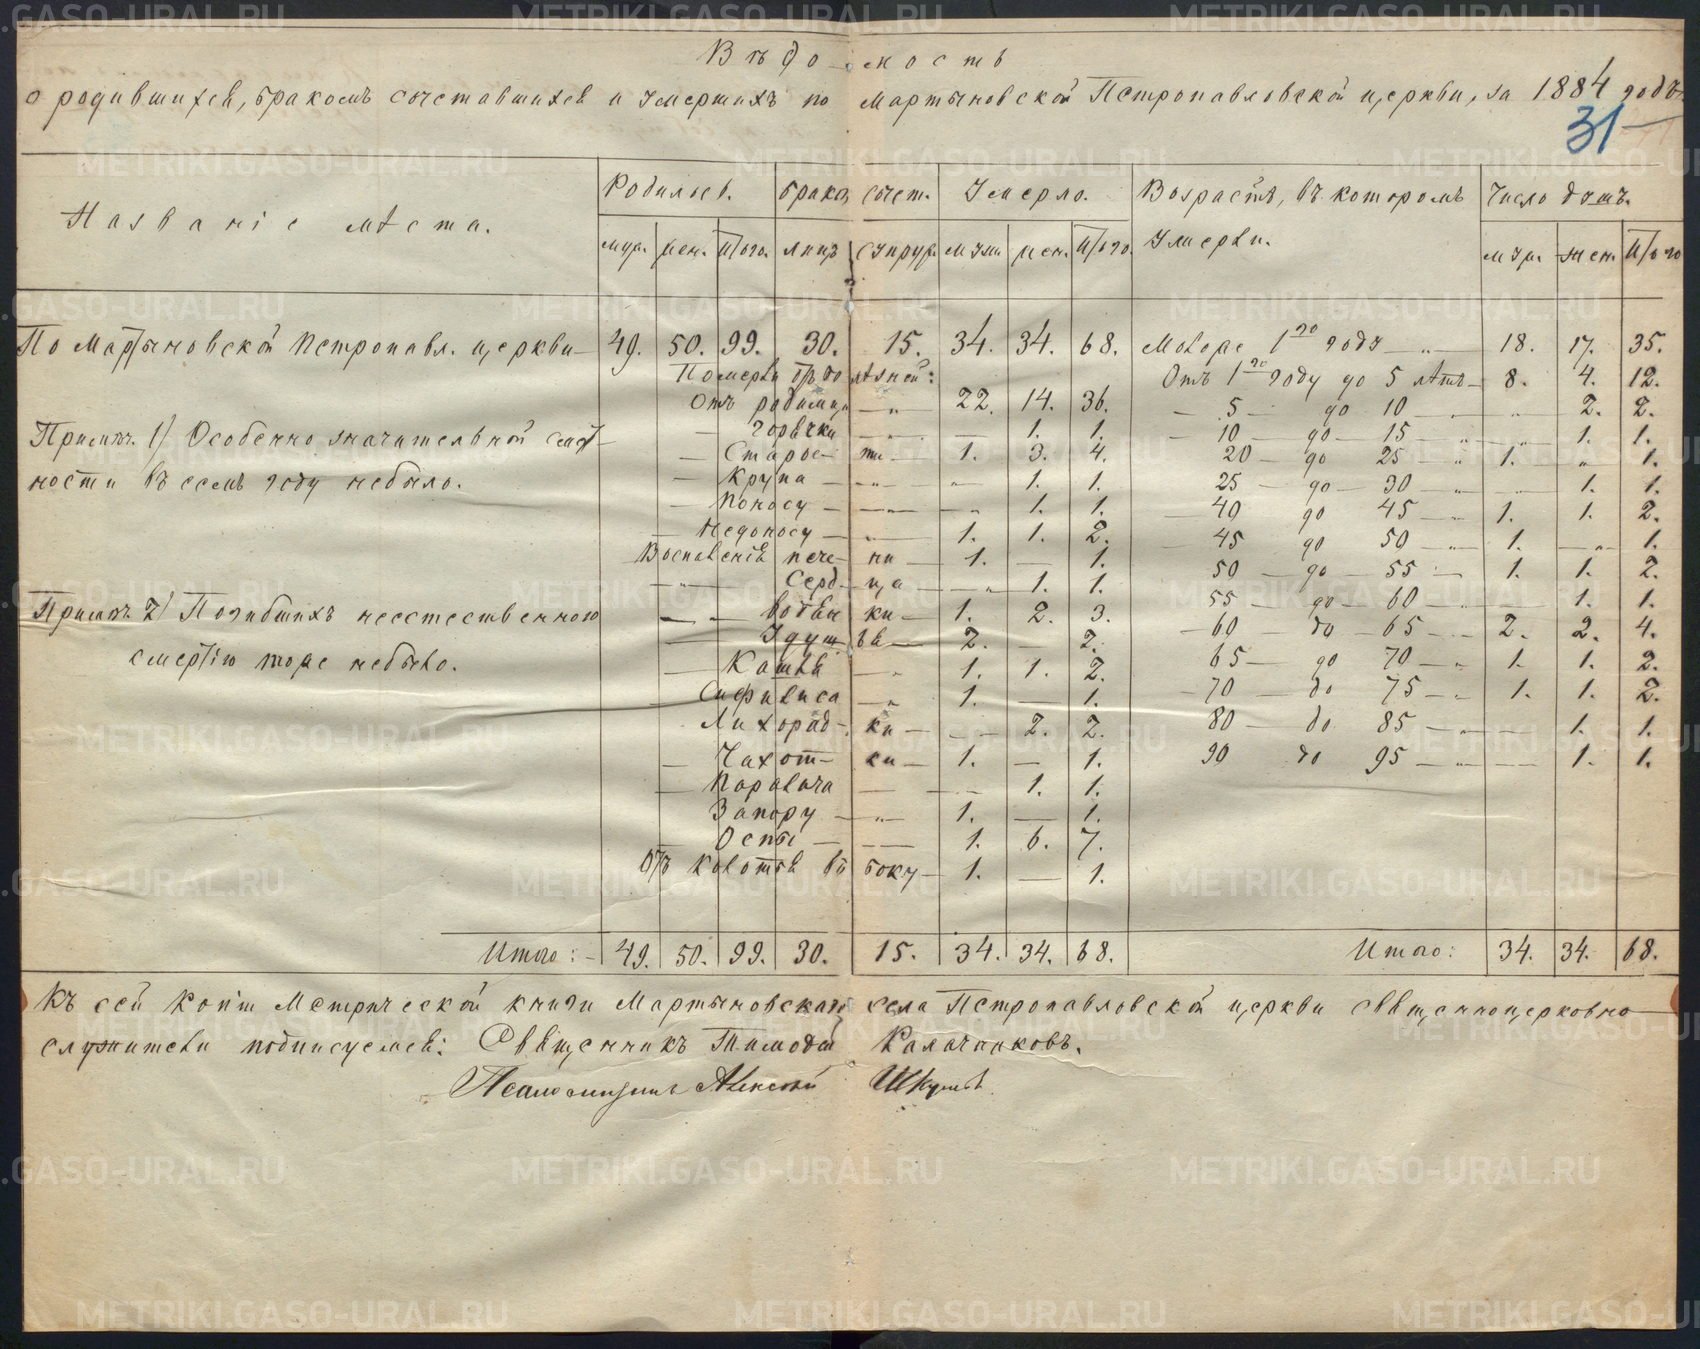 Вѣдомость
о родившихся, бракомъ сочетавшихся и умершихъ по Мартыновской Петропавловской церкви, за 1884 годъ.
31
Названіе мѣста. Родилося. Брако, сочет. Умерло. Возрастъ, въ которомъ умерли. Число душъ.
муж. жен. Итого. лицъ супруж. муж. жен. Итого. муж. жен. Итого
По Мартыновской Петропавл. церкви 49. 50. 99. 30. 15. 34. 34. 68. Моложе 1го года 18. 17. 35.
Померли отъ болѣзней: Отъ 1го году до 5 лѣтъ 8. 4. 12.
Отъ родимца 22. 14. 36. 5 до 10 2. 2.
Примѣч. 1) Особенно значительной смерт- горячки 1. 1. 10 до 15 1. 1.
Старости 1. 3. 4. 20 до 25 1. 1.
ности въ семъ году небыло. Крупа 1. 1. 25 до 30 1. 1.
Поносу 1. 1. 40 до 45 1. 1. 2.
Недоносу 1. 1. 2. 45 до 50 1. 1.
Воспаленія печени 1. 1. 50 до 55 1. 1. 2.
Сердца 1. 1. 55 до 60 1. 1.
Примѣч. 2) Погибшихъ неестественною водянки 1. 2. 3. 60 до 65 2. 2. 4.
Удушья 2. 2. 65 до 70 1. 1. 2.
смертію тоже небыло. Кашля 1. 1. 2.
Сифилиса 1. 1. 70 до 75 1. 1. 2.
Лихорадки 2. 2. 80 до 85 1. 1.
Чахотки 1. 1. 90 до 95 1. 1.
Паралича 1. 1.
Запору 1. 1.
Оспы 1. 6. 7.
Отъ колотья въ боку 1. 1.
Итого: 49. 50. 99. 30. 15. 34. 34. 68. Итого: 34. 34. 68.
Къ сей копіи Метрической книги Мартыновскаго села Петропавловской церкви священноцерковно
служители подписуемся: Священникъ Тимофей Калачниковъ.
Псаломщикъ Алексей
METRIKI.GASO-URAL.RU